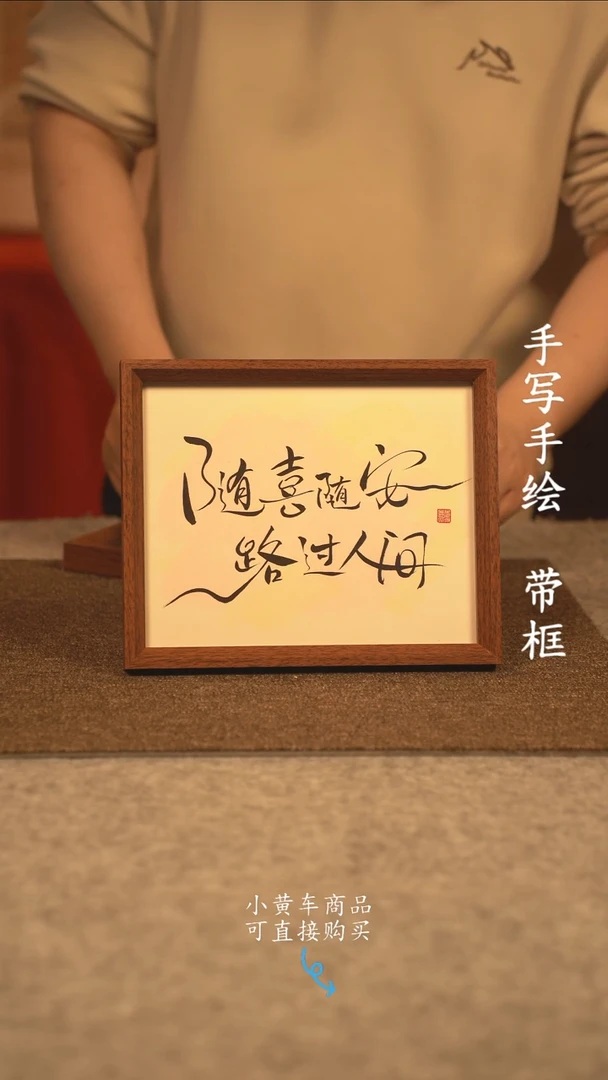 随喜随安
路过人间
手写手绘 带框
小黄车商品
可直接购买